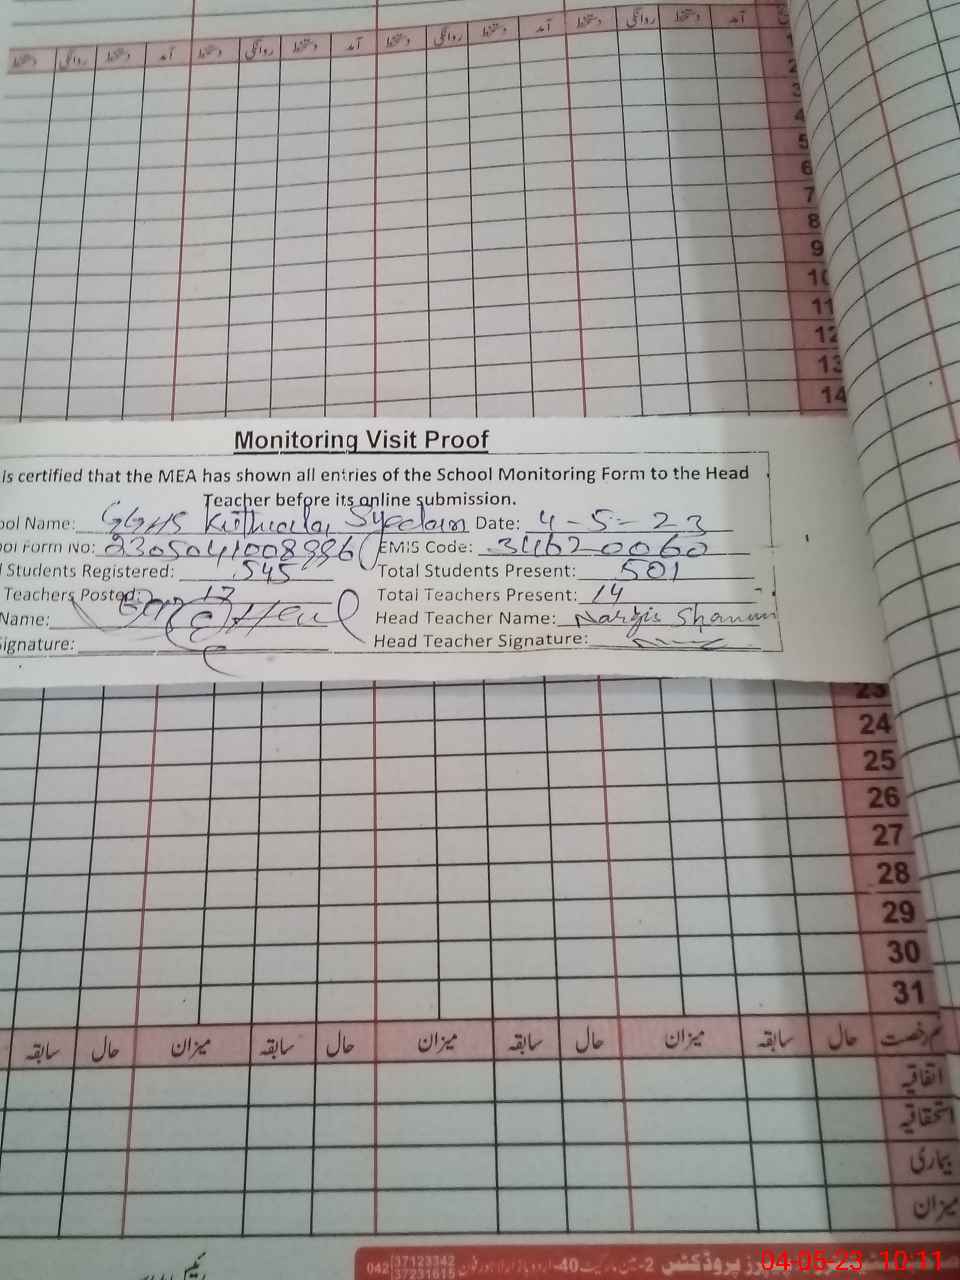 دستخط روانگی دستخط آمد دستخط روانگی دستخط آمد دستخط روانگی دستخط آمد دستخط روانگی دستخط آمد
1
2
3
4
5
6
7
8
9
10
11
12
13
14
Monitoring Visit Proof
is certified that the MEA has shown all entries of the School Monitoring Form to the Head
Teacher before its online submission.
ool Name: GGHS Kuthiala Syedan Date: 4-5-23
ool Form No: EMIS Code: 34620060
Students Registered: 545 Total Students Present: 501
Teachers Posted: 17 Total Teachers Present: 14
Name: Head Teacher Name: Nargis
ignature: Head Teacher Signature:
23
24
25
26
27
28
29
30
31
سابقہ حال میزان سابقہ حال میزان سابقہ حال میزان سابقہ حال رخصت
اتفاقیہ
استحقاقیہ
بیماری
میزان
042 37123342
37231615
04-05-23 10:11